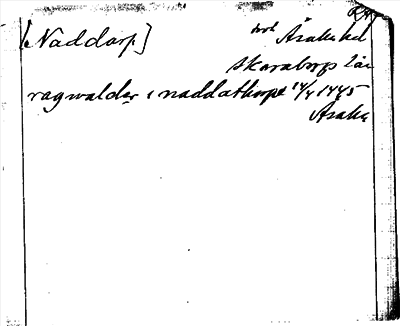 [Naddarp]
Åsaka hd
Skaraborgs län
ragwalder i naddathorpe 14/4 1445
Åsaka